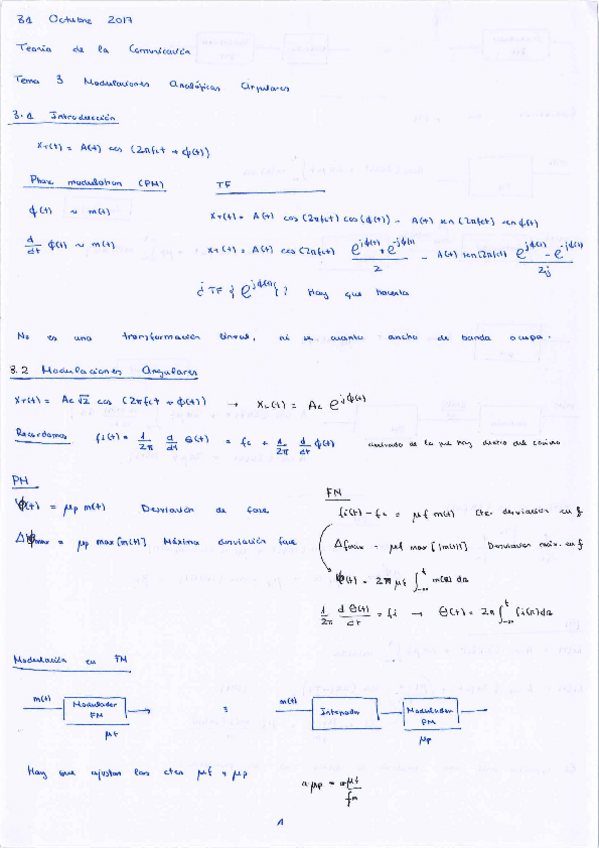 31 Octubre 2017
Teoría de la Comunicación
Tema 3 Modulaciones Analógicas Angulares
3.1 Introducción
x_T(t) = A(t) cos (2πfct + φ(t))
Phase modulation (PM)
φ(t) ~ m(t)
d/dt φ(t) ~ m(t)
TF
x_T(t) = A(t) cos (2πfct) cos (φ(t)) - A(t) sen (2πfct) sen φ(t)
x_T(t) = A(t) cos (2πfct) (e^{jφ(t)} + e^{-jφ(t)})/2 - A(t) sen (2πfct) (e^{jφ(t)} - e^{-jφ(t)})/2j
¿ TF { e^{jφ(t)} } ? Hay que hacerla
No es una transformación lineal, ni se cuanto ancho de banda ocupa.
3.2 Modulaciones Angulares
x_T(t) = Ac √2 cos (2πfct + φ(t)) → x_L(t) = Ac e^{jφ(t)}
Recordamos fi(t) = 1/2π d/dt θ(t) = fc + 1/2π d/dt φ(t) derivada de lo que hay dentro del coseno
PM
φ(t) = μp m(t) Desviación de fase
Δφmax = μp max [m(t)] Máxima desviación fase
FM
fi(t) - fc = μf m(t) Cte. desviación en f
Δfmax = μf max [|m(t)|] Desviación máx. en f
φ(t) = 2π μf ∫_{-∞}^{t} m(α) dα
1/2π dθ(t)/dt = fi → θ(t) = 2π ∫_{-∞}^{t} fi(α) dα
Modulación en FM
m(t) Modulador FM μf ≡ m(t) Integrador Modulador PM μp
Hay que ajustar las ctes μf y μp
μp = μf/fm
1